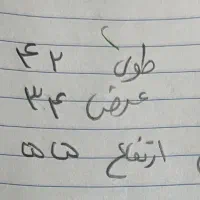 طول ۴۲
عرض ۳۴
ارتفاع ۵۵